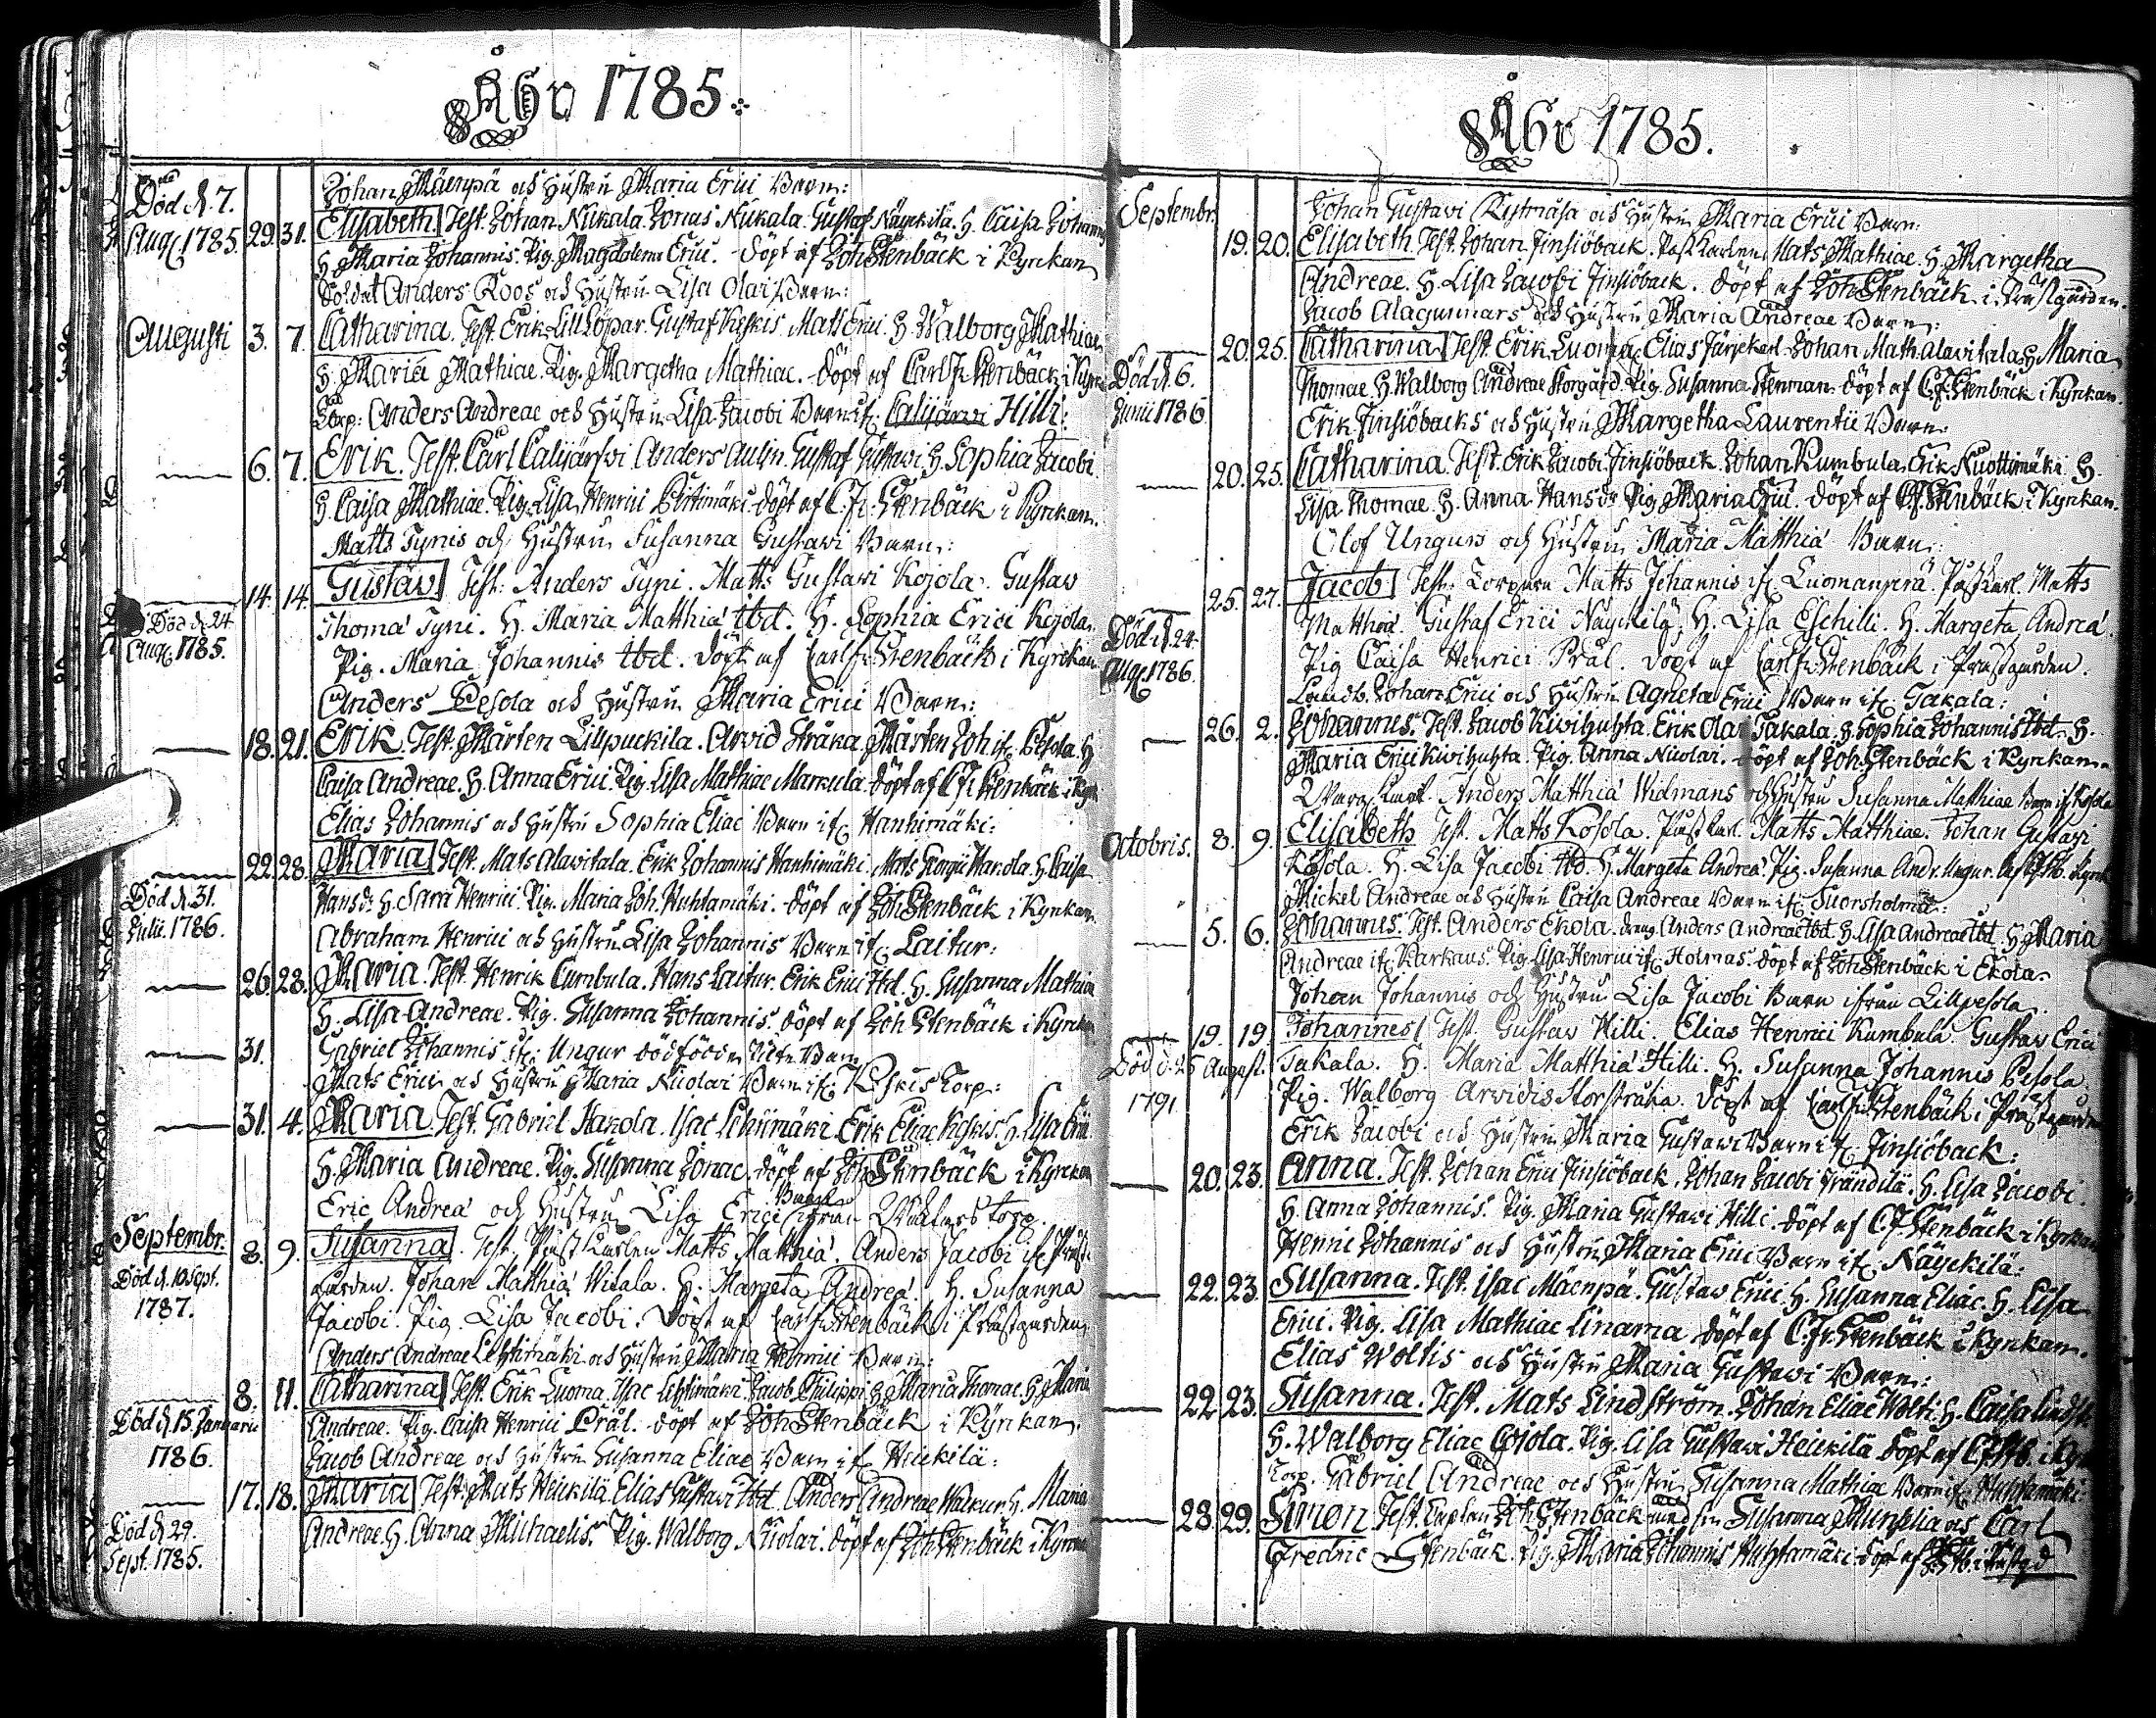 Åhr 1785.
Johan Mäenpä och Hustru Maria Erici Barn:
Död d. 7.
Aug. 1785. 29. 31. Elisabeth. Test. Johan Niikala Jonas Niikala. Gustaf Näyckilä. H. Caisa Johannis
H. Maria Johannis. Pig. Magdalena Erici. döpt af Joh Stenbäck i Kyrkan
Soldat Anders Roos och Hustru Lisa Olai Barn:
Augusti 3. 7. Catharina. Test. Erik Lillsopar. Gustaf Keskis Mats Erici. H. Walborg Mathiae
H. Maria Mathiae. Pig. Margetha Mathiae. döpt af Carl Fr Stenbäck i Kyrk
Torp: Anders Andreae och Hustru Lisa Jacobi Barn if. Calijärwi Hilli:
6. 7. Erik. Test. Carl Calijärwi. Anders Aulin. Gustaf Gustavi. H. Sophia Jacobi
H. Caisa Mathiae. Pig. Lisa Henrici. döpt af C. Fr. Stenbäck i Kyrkan.
Matts Tynis och Hustru Susanna Gustavi Barn:
14. 14. Gustav Test: Anders Tyni. Matts Gustavi Kojola. Gustav
Död d. 24
Aug. 1785.
Thomæ Tyni. H. Maria Matthiæ ibd. H. Sophia Erici Kojola.
Pig. Maria Johannis ibd. döpt af Carl Fr Stenbäck i Kyrckan
Anders Pesola och Hustru Maria Erici Barn:
18. 21. Erik. Test. Mårten Lillpuckila. Arvid Stråka. Mårten Joh if. Pesola. H
Caisa Andreae. H. Anna Erici. Pig. Lisa Mathiae Marcula. döpt af C Fr Stenbäck i Kyrk
Elias Johannis och Hustru Sophia Eliae Barn if. Hanhimäki:
22. 28. Maria Test. Mats Alavitala. Erik Johannis Hanhimäki. Mats Georgii Harola. H. Caisa
Död d. 31.
Julii. 1786.
Hansdr. H. Sara Henrici. Pig. Maria Joh. Huhtamäki. döpt af Joh Stenbäck i Kyrkan.
Abraham Henrici och Hustru Lisa Johannis Barn if. Laitur:
26. 28. Maria. Test. Henrik Cumbula. Hans Laitur. Erik Erici Ibd. H. Susanna Mathiae
H. Lisa Andreae. Pig. Susanna Johannis. döpt af Joh Stenbäck i Kyrkan
31. Gabriel Johannis if. Ungur dödfödde Barn
Mats Erici och Hustru Maria Nicolai Barn if. Keskis Torp:
31. 4. Maria. Test. Gabriel Hakola. Isac Lehtimäki. Erik Eliae Keskis. H. Lisa Erici
H. Maria Andreae. Pig. Susanna Jonae. döpt af Joh Stenbäck i Kyrckan
Eric Andreæ och Hustru Lisa Erici Barn ifrån Torp.
Septembr: 8. 9. Susanna. Test. Påstkarlen Matts Matthiæ. Anders Jacobi if. Präst
Död d. 10 Sept.
1787.
gården. Johan Matthiæ Witala. H. Margeta Andreæ. H. Susanna
Jacobi. Pig. Lisa Jacobi. Döpt af Carl Fr Stenbäck i Prästgården
Anders Andreae Lehtimäki och Hustru Maria Henrici Barn:
8. 11. Catharina Test. Erik Luoma. Isac Lehtimäki. Jacob Philippi. H. Maria Thomae. H. Maria
Död d. 15. Januarii
1786.
Andreae. Pig. Caisa Henrici Prål. döpt af Joh Stenbäck i Kyrkan.
Jacob Andreae och Hustru Susanna Eliae Barn if. Heickilä:
17. 18. Maria Test. Mats Heickilä Elias Gustavi Ibd. Anders Andreae Walkur. H. Maria
Död d. 29.
Sept. 1785.
Andreae. H. Anna Michaelis. Pig. Walborg Nicolai. döpt af Joh Stenbäck i Kyrkan
Åhr 1785.
Septembr.
Johan Gustavi Ristnäsa och Hustru Maria Erici Barn:
19. 20. Elisabeth. Test. Johan Finsiöback. Påstkarlen Mats Mathiae. H. Margetha
Andreae. H. Lisa Jacobi Finsiöback. döpt af Joh Stenbäck i Prästgården.
Jacob Alagunnars och Hustru Maria Andreae Barn:
20. 25. Catharina Test. Erik Luoma. Elias Färjekarl. Johan Math. Alavitala. H. Maria
Död d. 6.
Junii 1786.
Thomae. H. Walborg Andreae Storgård. Pig. Susanna Stenman. döpt af C. F. Stenbäck i Kyrkan.
Erik Finsiöbacks och Hustru Margetha Laurentii Barn:
20. 25. Catharina. Test. Erik Jacobi Finsiöback. Johan Kumbula. Erik Kuottimäki. H.
Lisa Thomae. H. Anna Hansdr. Pig. Maria Erici. döpt af C. F. Stenbäck i Kyrkan.
Olof Ungurs och Hustru Maria Matthiæ Barn:
25. 27. Jacob Test: Torparen Matts Johannis if. Luomanperä. Påstkarl. Matts
Död d. 24
Aug. 1786.
Matthiæ. Gustaf Erici Näyckilä. H. Lisa Eschilli. H. Margeta Andreæ.
Pig Caisa Henrici Prål. döpt af Carl Fr Stenbäck i Prästgården.
Landb. Johan Erici och Hustru Agneta Erici Barn if. Takala:
26. 2. Johannes. Test. Jacob Kiwihuhta. Erik Olai Takala. H. Sophia Johannis Ibd. H.
Maria Erici Kiwihuhta. Pig. Anna Nicolai. döpt af Joh. Stenbäck i Kyrkan.
Anders Matthiæ Widmans och Hustru Susanna Mathiae Barn if. Kosola
Octobris. 8. 9. Elisabeth Test. Matts Kosola. Påstkarl. Matts Matthiæ. Johan Gustavi
Kosola. H. Lisa Jacobi Ibd. H. Margeta Andreæ. Pig. Susanna Andr. Ungur.
Mickel Andreae och Hustru Caisa Andreae Barn if. Suorsholma:
5. 6. Johannes. Test. Anders Ekola. dräng. Anders Andreae Ibd. H. Lisa Andreae Ibd. H. Maria
Andreae if. Karkaus. Pig. Lisa Henrici if. Holmas. döpt af Joh Stenbäck i Ekola.
Johan Johannis och Hustru Lisa Jacobi Barn ifrån Lillpesola.
19. 19. Johannes Test. Gustav Hilli. Elias Henrici Kumbula. Gustav Erici
Död d. 25 August.
1791.
Takala. H. Maria Matthiæ Hilli. H. Susanna Johannis Pesola.
Pig. Walborg Arvidis Storstråka. Döpt af Carl Fr Stenbäck i Prästgården
Erik Jacobi och Hustru Maria Gustavi Barn if. Finsiöback:
20. 23. Anna. Test. Johan Erici Finsiöback. Johan Jacobi Frändilä. H. Lisa Jacobi.
H. Anna Johannis. Pig. Maria Gustavi Hilli. döpt af C. F. Stenbäck i Kyrkan
Henric Johannis och Hustru Maria Erici Barn if. Näyckilä:
22. 23. Susanna. Test. Isac Mäenpä. Gustav Erici. H. Susanna Eliae. H. Lisa
Erici. Pig. Lisa Mathiae Linama. döpt af C. Fr. Stenbäck i Kyrkan.
Elias Woltis och Hustru Maria Gustavi Barn:
22. 23. Susanna. Test. Mats Lindström. Johan Eliae Wolti. H. Caisa Lindst
H. Walborg Eliae Cojola. Pig. Lisa Gustavi Heickilä. döpt af C. F. Stb. i Kyr
Torp. Gabriel Andreae och Hustru Susanna Mathiae Barn if. Huhtamäki:
28. 29. Simon Test. Caplan Joh Stenbäck med sin Susanna och Carl
Fredric Stenbäck. Pig. Maria Johannis Huhtamäki. döpt af